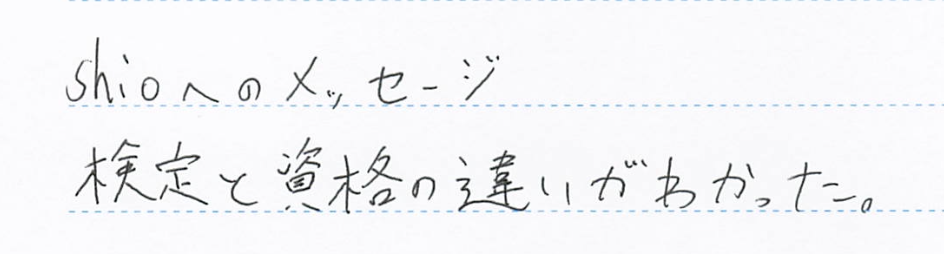 shioへのメッセージ
検定と資格の違いがわかった。